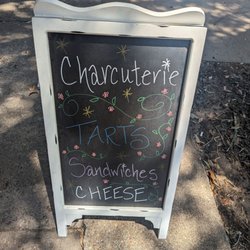 Charcuterie
TARTS
Sandwiches
CHEESE